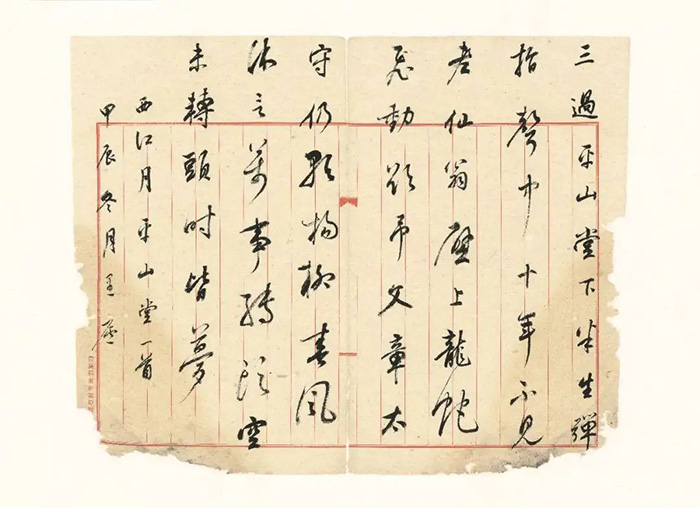 三過平山堂下半生彈
指聲中十年不見
老仙翁壁上龍蛇
飛動欲吊文章太
守仍歌楊柳春風
休言萬事轉頭空
未轉頭時皆夢
西江月平山堂一首
甲辰冬月